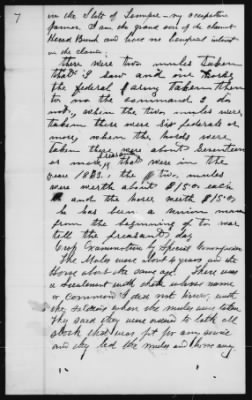 7
in the State of Tennessee - my occupation
farmer. I am the grand son of the claimant
and have no beneficial interest
in the claim.
There were two mules taken
that I saw and one horse
the federal army taken them
to no the command I do
not, when the two mules were
taken there were six federals or
more, when the horse were
taken there were about seventeen
or more, that were in the
year 1863, the two mules
were worth about $150 each
and the horse worth $150
he has been a union man
from the beginning of the war
till the present day
Cross Examination by Special Commissioner
The Mules were about 4 years and the
Horse about the same age. There was
a Lieutenant with them whose name
or Command I did not know, with
the Soldiers when the mules were taken
They said they were ordered to take all
stock that was fit for any service
and they led the mules and horse away